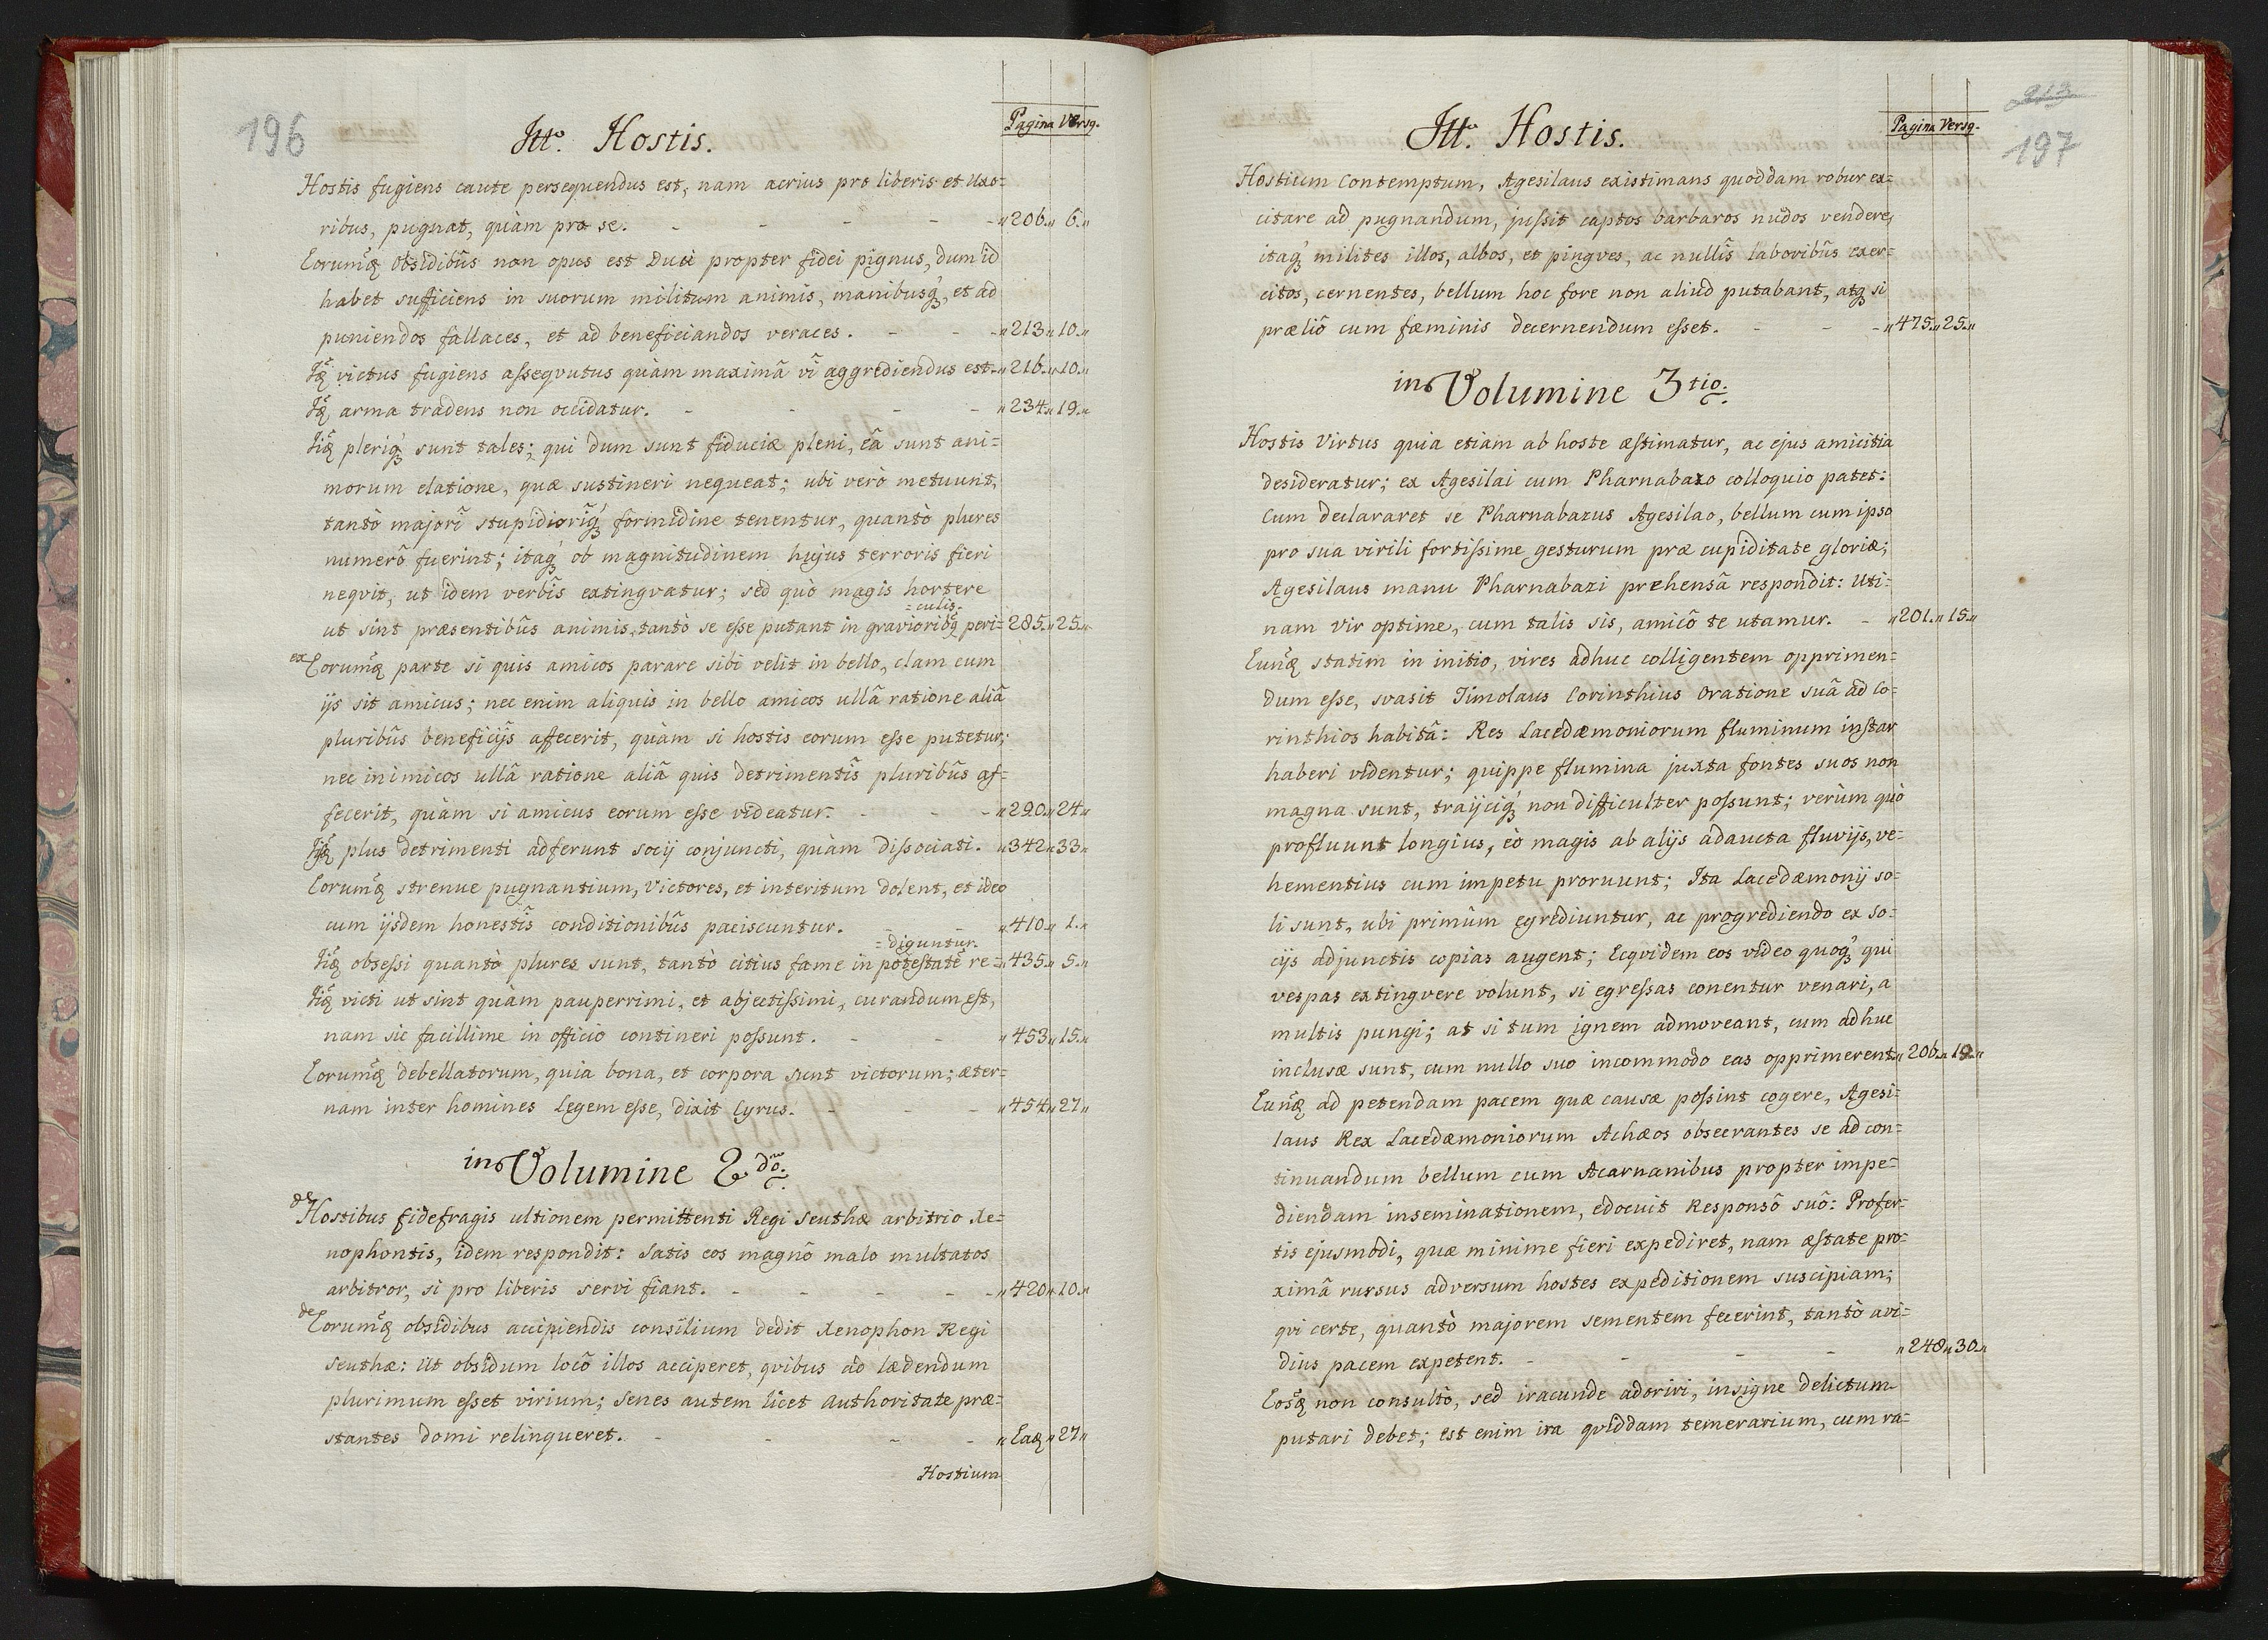 196
Itt.º Hostis.
Pagina Versq.
Hostis fugiens caute persequendus est, nam acrius pro liberis et Uxo=
ribus, pugnat, quàm pro se. - - - - - „206.„ 6.„
Eorumq̃ Obsidibũs non opus est Duci propter fidei pignus, dum id
habet sufficiens in suorum militum animis, manibusq́, et ad
puniendos fallaces, et ad beneficiandos veraces. - - - „213„10.„
Iq̃ victus fugiens assequutus quàm maximâ vî aggrediendus est.„216.„10.„
Iq̃ arma tradens non occidatur. - - - - „234.„19.„
Iiq̃ pleriq́ sunt tales; qui dum sunt fiduciæ pleni, eâ sunt ani=
morum elatione, quæ sustineri nequeat; ubi verò metuunt,
tantò majorî stupidiorîq́ formidine tenentur, quantò plures
numerô fuerint; itaq́ ob magnitudinem hujus terroris fieri
neqvit, ut idem verbîs extingvatur; sed quò magis hortere
=culis.
ut sint præsentibũs animis, tantò se esse putant in gravioribq̃ peri= 285.„25.„
ex Eorumq̃ parte si quis amicos parare sibi velit in bello, clam cum
ijs sit amicus; nec enim aliquis in bello amicos ullâ ratione aliâ
pluribũs beneficijs affecerit, quàm si hostis eorum esse putetur;
nec inimicos ullâ ratione aliâ quis detrimentîs pluribũs af=
fecerit, quàm si amicus eorum esse videatur. - - - „290.„24„
Iiq̃ plus detrimenti adferunt socij conjuncti, quàm dissociati. „342„33„
Eorumq̃ strenue pugnantium, Victores, et interitum dolent, et ideo
cum ijsdem honestîs conditionibũs paciscuntur. - - „410„ 1.„
=diguntur.
Iiq̃ obsessi quantò plures sunt, tantò citius fame in potestatẽ re=„435.„ 5.„
Iiq̃ victi ut sint quàm pauperrimi, et abjectissimi, curandum est,
nam sic facillime in officio contineri possunt. - - „453„15.„
Eorumq̃ debellatorum, quia bona, et corpora sunt victorum; æter=
nam inter homines Legem esse, dixit Cyrus. - - - „454„27„
in Volumine 2dõ.
de Hostibus fidefragis ultionem permittenti Regi Seuthæ arbitrio Xe=
nophontis, idem respondit: Satis eos magnô malo multatos
arbitror, si pro liberis servi fiant. - - - - - „420„10.„
de Eorumq̃ obsidibus accipiendis consilium dedit Xenophon Regi
Seuthæ: Ut obsidum locô illos acciperet, qvibus ad lædendum
plurimum esset virium; Senes autem licet Authoritate præ=
stantes domi relinqueret. - - - - „Eaq̃„27„
Hostium
213
197
Itt.º Hostis.
Pagina Versq.
Hostium Contemptum, Agesilaus existimans quoddam robur ex=
citare ad pugnandum, jussit captos barbaros nudos vendere,
itaq́ milites illos, albos, et pingves, ac nullîs laboribũs exer=
citos, cernentes, bellum hoc fore non aliud putabant, atq́ si
præliô cum fæminis decernendum esset. - - - „475.„25.„
in Volumine 3tio.
Hostis Virtus quia etiam ab hoste æstimatur, ac ejus amicitia
desideratur; ex Agesilai cum Pharnabazo colloquio patet:
Cum declararet se Pharnabazus Agesilao, bellum cum ipso
pro sua virili fortissime gesturum præ cupiditate gloriæ;
Agesilaus manu Pharnabazi prehensâ respondit: Uti=
nam Vir optime, cum talis sis, amicô te utamur. - „201.„15.„
Eunq̃ statim in initio, vires adhuc colligentem opprimen=
dum esse, svasit Timolaus Corinthius Oratione suâ ad Co=
rinthios habitâ: Res Lacedæmoniorum fluminum instar
haberi videntur; quippe flumina juxta fontes suos non
magna sunt, traijciq́ non difficulter possunt; verùm quò
profluunt longius, eò magis ab alijs adaucta fluvijs, ve=
hementius cum impetu proruunt; Ita Lacedæmonij so=
li sunt, ubi primũm egrediuntur, ac progrediendo ex so=
cijs adjunctis copias augent; Ecqvidem eos video quoq́ qui
vespas extingvere volunt, si egressas conentur venari, a
multis pungi; at si tum ignem admoveant, cum adhuc
inclusæ sunt, cum nullo suo incommodo eas opprimerent.„206.„19.„
Eunq̃ ad petendam pacem quæ causæ possint cogere, Agesi=
laus Rex Lacedæmoniorum Achæos obsecrantes se ad con=
tinuandum bellum cum Acarnanibus propter impe=
diendam inseminationem, edocuit Responsô suô: Profer=
tis ejusmodi, quæ minime fieri expediret, nam æstate pro=
ximâ rursus adversum hostes expeditionem suscipiam;
qvi certe, quantò majorem sementem fecerint, tantò avi=
dius pacem expetent. - - - - „248„30.„
Eosq̃ non consultò, sed iracunde adoriri, insigne delictum
putari debet; est enim ira qviddam temerarium, cum ra=